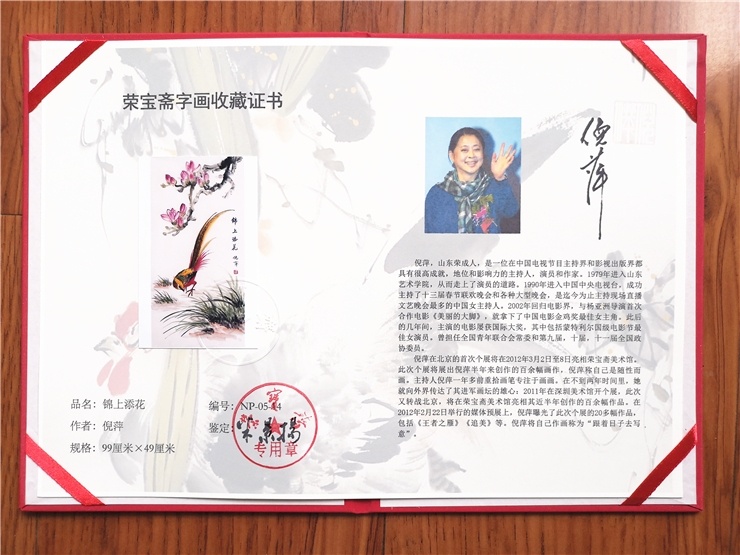 荣宝斋字画收藏证书
锦上添花
品名：锦上添花
作者：倪萍
规格：99厘米×49厘米
编号：NP-05-
鉴定
专用章
倪萍
倪萍，山东荣成人，是一位在中国电视节目主持界和影视出版界都
具有很高成就，地位和影响力的主持人，演员和作家。1979年进入山东
艺术学院，从而走上了演员的道路。1990年进入中国中央电视台，成功
主持了十三届春节联欢晚会和各种大型晚会，是迄今为止主持现场直播
文艺晚会最多的中国女主持人。2002年回归电影界，与杨亚洲导演首次
合作电影《美丽的大脚》，就拿下了中国电影金鸡奖最佳女主角。此后
的几年间，主演的电影屡获国际大奖，其中包括蒙特利尔国级电影节最
佳女演员。曾担任全国青年联合会常委和第九届，十届，十一届全国政
协委员。
倪萍在北京的首次个展将在2012年3月2日至8日亮相荣宝斋美术馆。
此次个展将展出倪萍半年来创作的百余幅画作，倪萍称自己是随性而
画。主持人倪萍一年多前重拾画笔专注于画画。在不到两年时间里，她
就向外界传达了其进军画坛的雄心；2011年在深圳美术馆开个展，此次
又转战北京，将在荣宝斋美术馆亮相其近半年创作的百余幅作品。在
2012年2月22日举行的媒体预展上，倪萍曝光了此次个展的20多幅作品，
包括《王者之雁》《追美》等。倪萍将自己作画称为“跟着日子去写
意”。